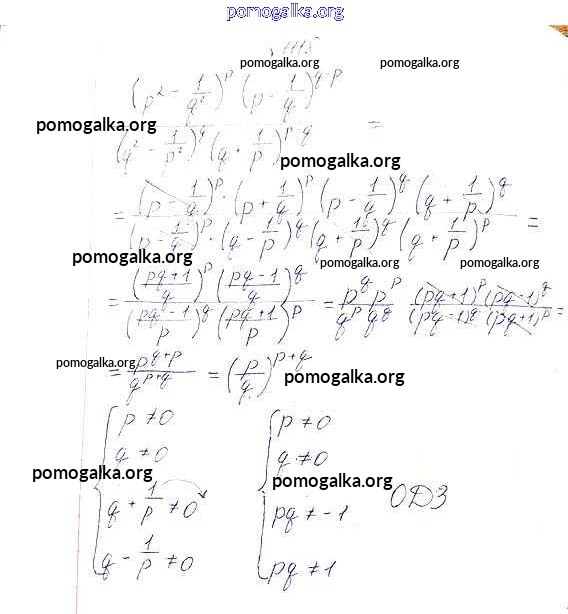 pomogalka.org
1113
pomogalka.org pomogalka.org
(p² - 1/q²)^p (p - 1/q)^(q-p)
pomogalka.org
(q² - 1/p²)^q (q + 1/p)^(p-q) =
pomogalka.org
= (p - 1/q)^p · (p + 1/q)^p (p - 1/q)^q (q + 1/p)^q
(p - 1/q)^p · (q - 1/p)^q (q + 1/p)^q (q + 1/p)^p =
pomogalka.org pomogalka.org pomogalka.org
= ((pq+1)/q)^p ((pq-1)/q)^q / ((pq-1)/p)^q ((pq+1)/p)^p = p^q p^p / q^p q^q (pq+1)^p (pq-1)^q / (pq-1)^q (pq+1)^p =
pomogalka.org
= p^(q+p) / q^(p+q) = (p/q)^(p+q)
pomogalka.org
p ≠ 0 p ≠ 0
q ≠ 0 q ≠ 0
pomogalka.org pomogalka.org
q + 1/p ≠ 0 pq ≠ -1 ОДЗ
q - 1/p ≠ 0 pq ≠ 1